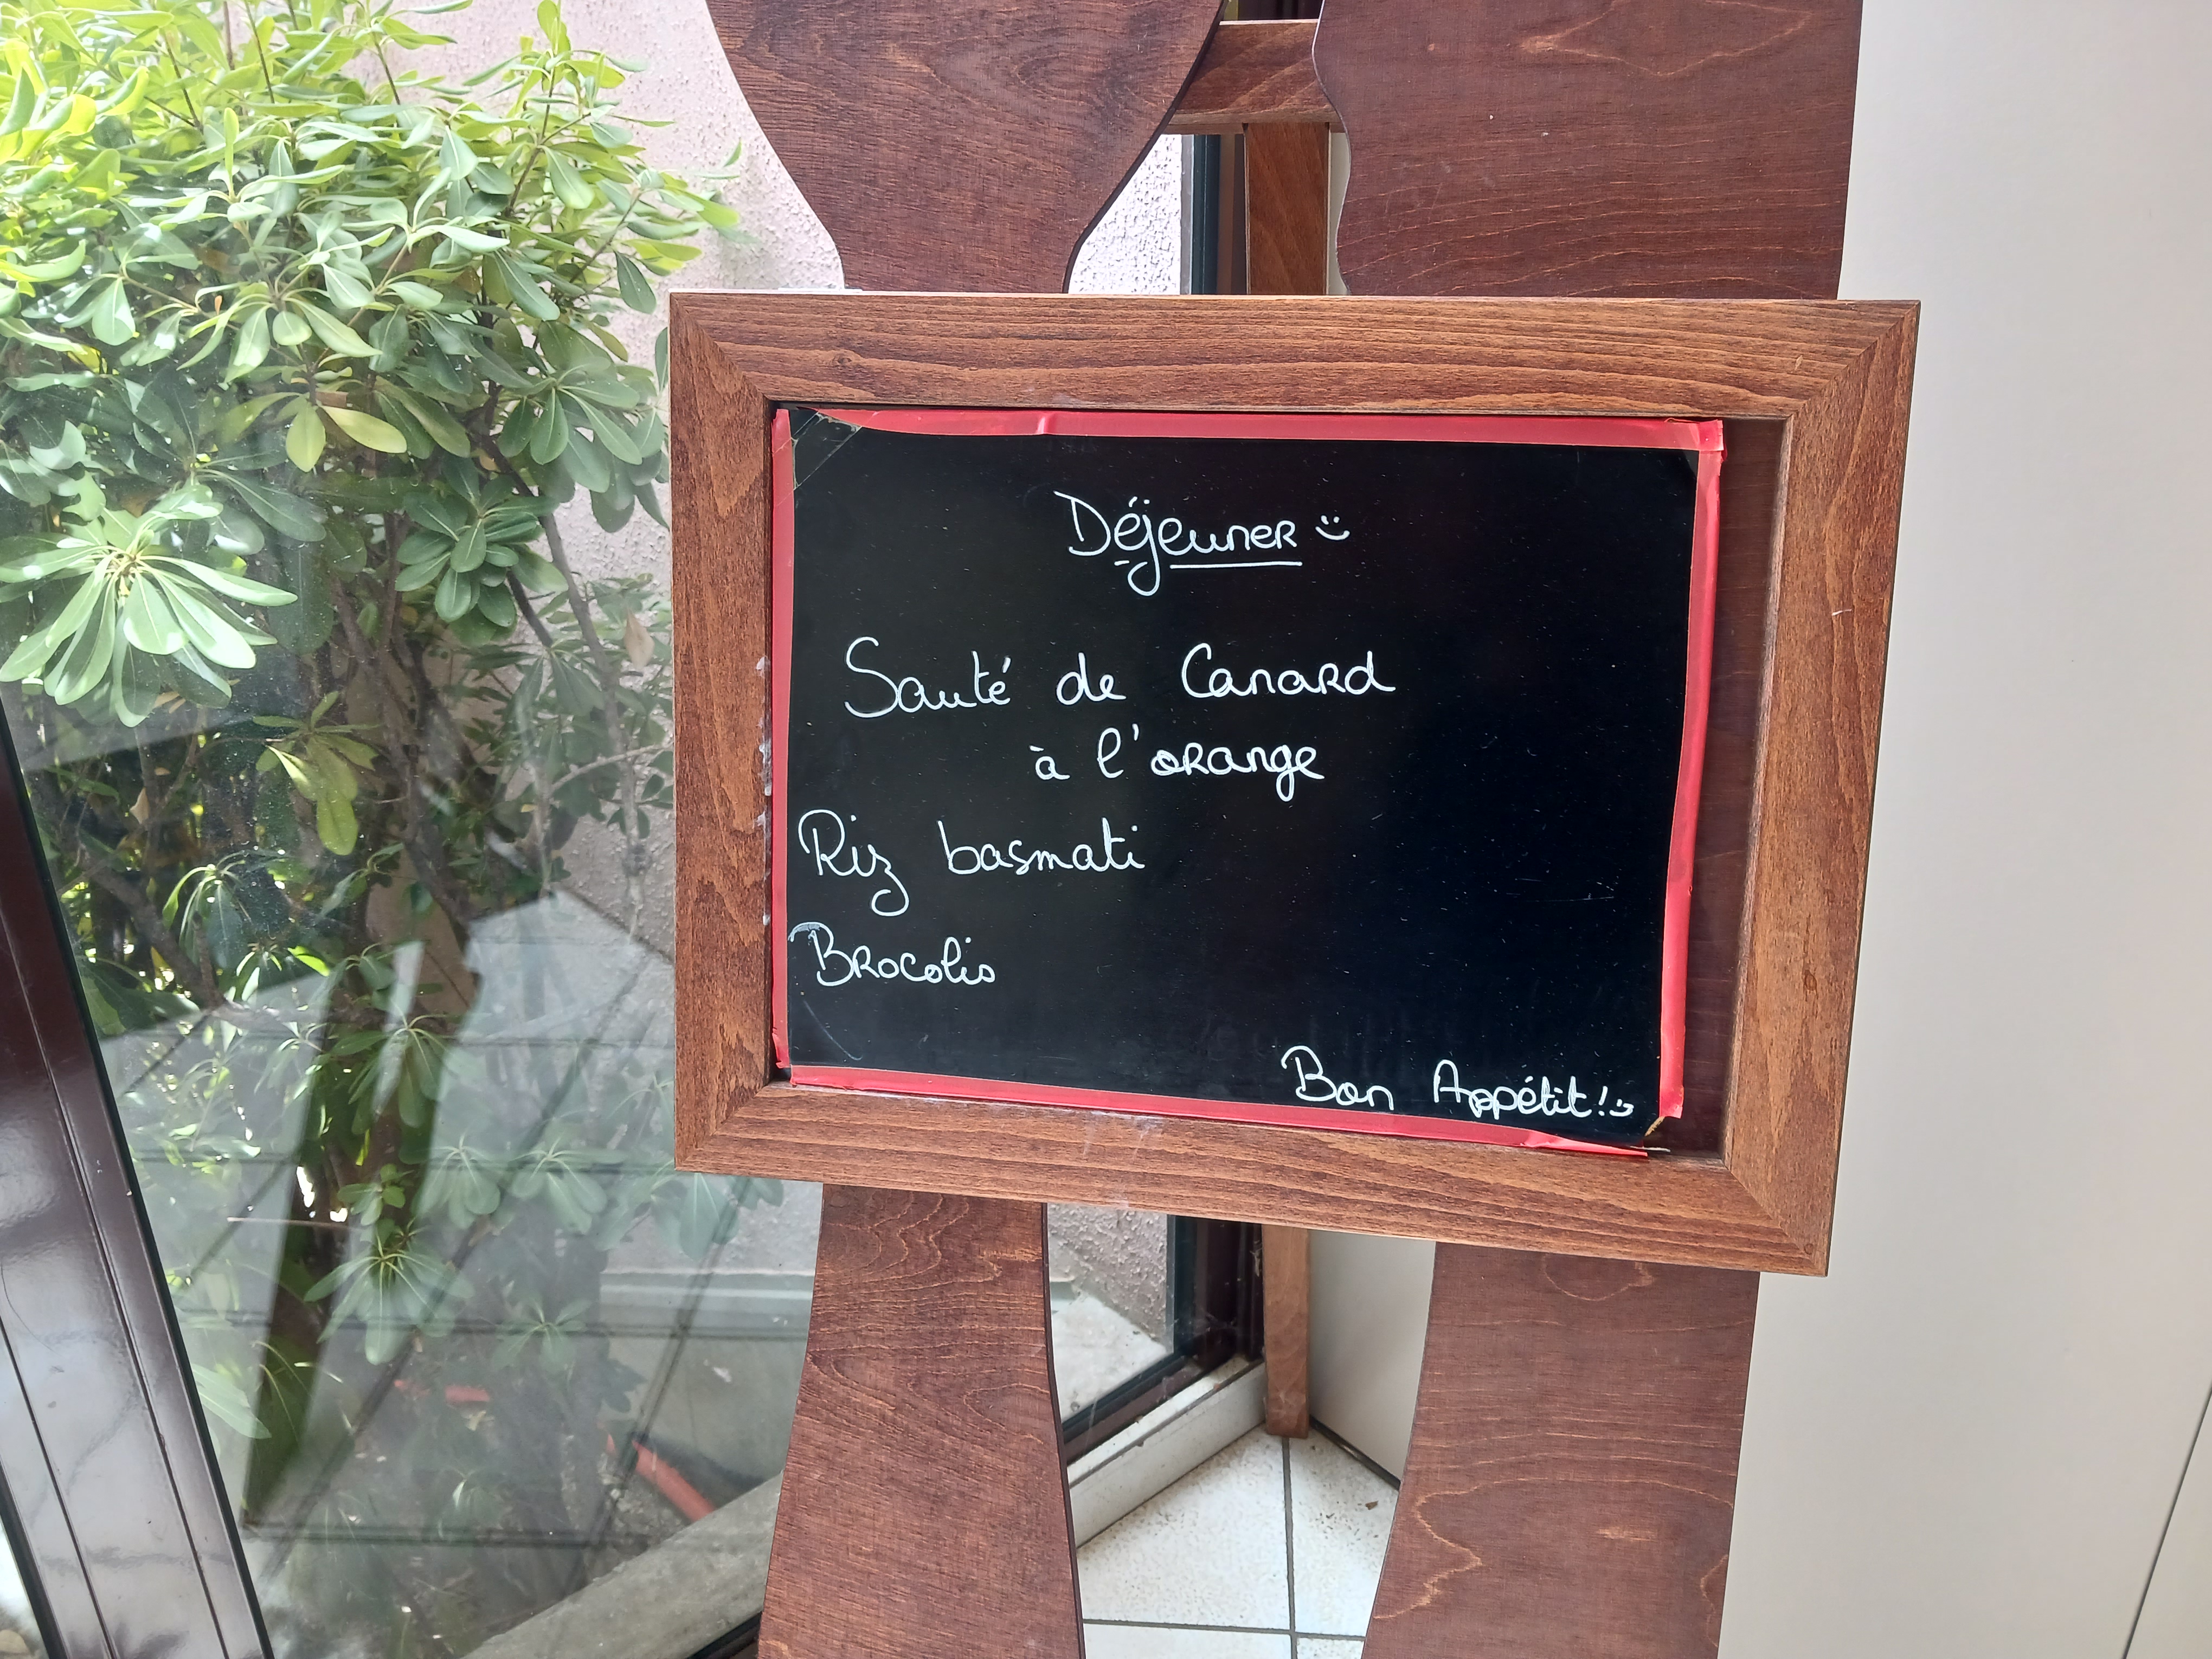 Déjeuner :)
Sauté de Canard
à l'orange
Riz basmati
Brocolis
Bon Appétit! :)